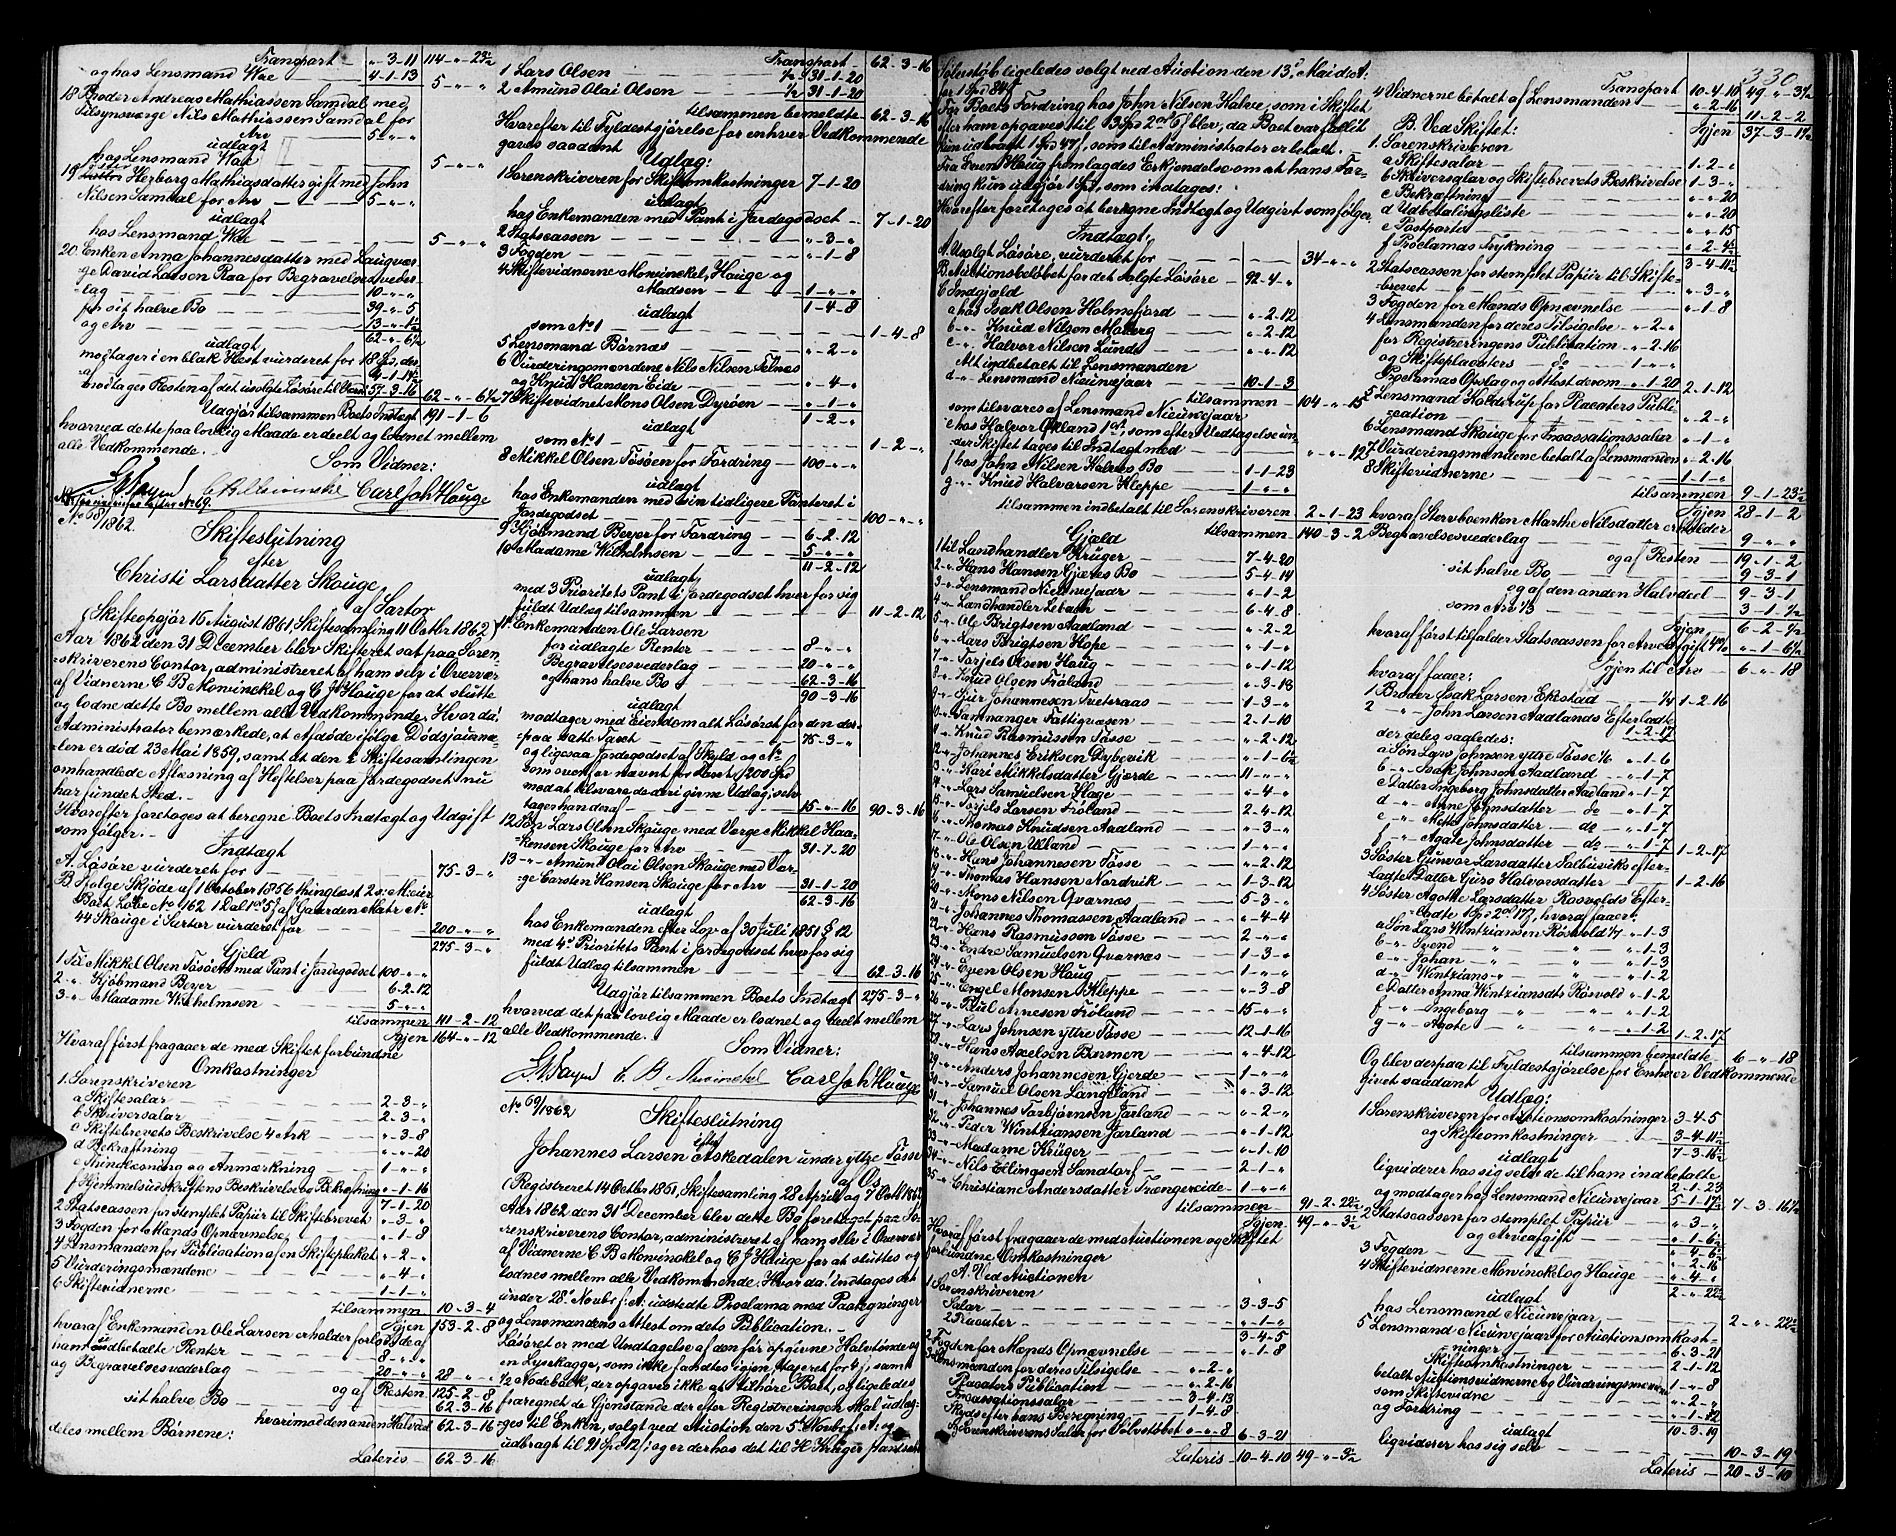 Transport - " - 3 - 11 | 114 - " - 22½
og hos Lensmand Wae - 4 - 1 - 13 | 5 - " - "
18 Broder Andreas Mathiassen Samdal med
Tilsynsværge Nils Mathiassen Samdal for
Arv - 5 - " - "
udlagt
hos Lensmand Wae - 5 - " - "
19 Søster Herborg Mathiasdatter gift med John
Nilsen Samdal for Arv - 5 - " - "
udlagt
hos Lensmand Wae - 5 - " - "
20 Enken Anna Johannesdatter med Laugvær-
ge David Larsen Raa for Begravelsesveder-
lag - 10 - " - "
for sit halve Bo - 39 - " - 5
og Arv - 13 - " - 1½
62 - " - 6½
udlagt
modtager i en blak Hest vurderet for 18 Spd. der-
af - 4 - 1 - 14½
modtager Resten af det usolgte Løsøre til Værdi 57 - 3 - 16 | 62 - " - 6½
Udgjør tilsammen Boets Indtægt 191 - 1 - 6
hvorved dette paa lovlig Maade er deelt og lodnet mellem
alle Vedkommende.
Som Vidner:
C B Mowinckel Carl Joh Hauge
No 68/1862.
Skifteslutning
efter
Christi Larsdatter Skouge,
af Sartor
(Skifteopgjør 15 August 1861, Skiftesamling 11 Octbr 1862)
Aar 1862 den 31 December blev Skifteret sat paa Soren-
skriverens Contor, administreret af ham selv i Overvær
af Vidnerne C B Mowinckel og C J Hauge for at slutte
og lodne dette Bo mellem alle Vedkommende. Hvor da
Administrator bemærkede, at Afdøde ifølge Dødsjourna-
len er død 23 Mai 1859, samt at den i Skiftesamlingen
omhandlede Aflæsning af Heftelser paa Jordegodset nu
har fundet Sted.
Hvorefter foretages at beregne Boets Indtægt og Udgift
som følger.
Indtægt
A. Løsøre vurderet for - 75 - 3 - "
B Ifølge Skjøde af 1 October 1856 thinglæst 2
Boet Løbe No 162 1 Dal 1 ort 5 s af Gaarden Matr No
44 Skouge i Sartor vurderet for - 200 - " - "
275 - 3 - "
Gjeld
1 Til Mikkel Olsen Tøsøen med Pant i Jordegodset 100 - " - "
2 - " - Kjøbmand Beyer - 6 - 2 - 12
3 - " - Madame Wilhelmsen - 5 - " - "
tilsammen 111 - 2 - 12
Igjen 164 - " - 12
Hvoraf først fragaaer de med Skiftet forbundne
Omkostninger
1. Sorenskriveren
a Skiftesalar - 2 - 3 - "
b Skriversalar - 2 - 3 - "
c Skiftebrevets Beskrivelse 4 Ark - " - 3 - 8
d Bekræftning - " - " - 20
e Thinglæsning og Anmærkning - 1 - " - "
f Hjemmelsudskriftens Beskrivelse og Bekræftning " - 1 - 16
7 - 1 - 20
2 Statscassen for stemplet Papiir til Skiftebrevet " - 3 - "
3 Fogden for Mænds Opnævnelse - " - 1 - 8
4 Lensmanden for Publication af en Skifteplakat " - 2 - "
5 Vurderingsmændene - " - 4 - "
6 Skiftevidnerne - 1 - 1 - "
tilsammen 10 - 3 - 4
Igjen 153 - 2 - 8
hvoraf Enkemanden Ole Larsen erholder forlods de af
ham udbetalte Renter - 8 - " - "
og Begravelsesvederlag - 20 - " - " | 28 - " - "
og af Resten 125 - 2 - 8
sit halve Bo - 62 - 3 - 16
hvorimod den anden Halvdeel 62 - 3 - 16
deles mellem Børnene:
Lateris - 62 - 3 - 16
Transport - 62 - 3 - 16
1 Lars Olsen - ½ - 31 - 1 - 20
2 Amund Olai Olsen - ½ - 31 - 1 - 20
tilsammen bemeldte - 62 - 3 - 16
Hvorefter til Fyldestgjørelse for enhver Vedkommende
gaves saadant
Udlæg:
1 Sorenskriveren for Skifteomkostninger 7 - 1 - 20
udlagt
hos Enkemanden med Pant i Jordegodset - 7 - 1 - 20
2 Statscassen - " - 3 - "
3 Fogden - " - 1 - 8
4 Skiftevidnerne Mowinckel, Hauge og
Madsen - 1 - " - "
1 - 4 - 8
udlagt
som No 1 - 1 - 4 - 8
5 Lensmand Børnæs - " - 2 - "
6 Vurderingsmændene Nils Nilsen Telnæs
og Knud Hansen Eide - " - 4 - "
7 Skiftevidnet Mons Olsen Dyrøen - " - 1 - "
1 - 2 - "
udlagt
som No 1 - 1 - 2 - "
8 Mikkel Olsen Tøsøen for Fordring - 100 - " - "
udlagt
hos Enkemanden med sin tidligere Panteret i
Jordegodset - 100 - " - "
9 Kjøbmand Beyer for Fordring - 6 - 2 - 12
10 Madame Wilhelmsen - 5 - " - "
11 - 2 - 12
udlagt
med 3 Prioritets Pant i Jordegodset hver for sig
fuldt Udlæg tilsammen - 11 - 2 - 12
11 Enkemanden Ole Larsen
for udlagte Renter - 8 - " - "
Begravelsesvederlag - 20 - " - "
og hans halve Bo - 62 - 3 - 16
90 - 3 - 16
udlagt
modtager med Eiendom alt Løsøret for den der-
paa satte Taxt - 75 - 3 - "
og ligesaa Jordegodset af Skyld og No
som ovenfor nævnt for Taxt 200 Spd
mod at tilsvare de deri givne Udlæg, selv
tager han deraf - 15 - " - 16 | 90 - 3 - 16
12 Søn Lars Olsen Skouge med Værge Mikkel Haa-
kensen Skouge for Arv - 31 - 1 - 20
13 - " - Amund Olai Olsen Skouge med Vær-
ge Carsten Hansen Skouge for Arv - 31 - 1 - 20
62 - 3 - 16
udlagt
hos Enkemanden efter Lov af 30 Juli 1851 § 12
med 4de Prioritets Pant i Jordegodset hver for sig
fuldt Udlæg tilsammen - 62 - 3 - 16
Udgjør tilsammen Boets Indtægt 275 - 3 - "
hvorved det paa lovlig Maade er lodnet og deelt mellem
alle Vedkommende.
Som Vidner:
C. B Mowinckel Carl Joh Hauge
No 69/1862
Skifteslutning
efter
Johannes Larsen Askedalen under yttre Tøsse
af Os
(Registreret 14 Octbr 1861, Skiftesamling 28 April og 7 Octbr 1862)
Aar 1862 den 31te December blev dette Bo foretaget paa So-
renskriverens Contor, administreret af ham selv i Overvær
af Vidnerne C B Mowinckel og C J Hauge for at sluttes og
lodnes mellem alle Vedkommende. Hvor da indtages det
under 28de Novbr f: A: udstedte Proclama med Paategninger
og Lensmandens Attest om dets Publication.
Løsøret er med Undtagelse af den før opgivne Halvtønde og
en Lysekagge, som ikke fandtes igjen, taxeret for 4 s, samt
½ Nodebaek, der opgaves ikke at tilhøre Boet, og ligeledes
fraregnet de Gjenstande der efter Registreringen skal udlæg-
ges til Enken, solgt ved Auction den 5te Novbr f: A: og
udbragt til 91 Spd 12 s; og er derhos det til H. Krüger pantsatte
330
Sølvstøb ligeledes solgt ved Auction den 13de Mai d: A:
for 1 Spd 84 s
For Boets Fordring hos John Nilsen Halve, som i Skiftet
efter ham opgaves til 13 Spd 2 ort 6 s blev, da Boet var fallit
kun udbragt 1 Spd 47 s, som til Administrator er betalt.
Fra Even Haug fremlagdes Erkjendelse om at hans For-
dring kun udgjør 1 Spd, som indtages:
Hvorefter foretages at beregne Indtægt og Udgift som følger
Indtægt,
A. Usolgt Løsøre, vurderet for - 34 - " - "
B. Auctionsbeløbet for det solgte Løsøre - 92 - 4 - "
C Indgjæld
a hos Isak Olsen Holmefjord - " - 2 - 12
b - " - Knud Nilsen Moberg - " - 2 - 12
c - " - Halvor Nilsen Lunde - " - " - 12
Alt indbetalt til Lensmanden
d - " - Lensmand Nieuwejaar - 10 - 1 - 3
tilsammen - 104 - " - 15
som tilsvares af Lensmand Nieuwejaar
e hos Halvor Økland 1 ort, som efter Vedtagelse un-
der Skiftet tages til Indtægt med - " - " - 12
f hos John Nilsen Halves Bo - 1 - 1 - 23
g - " - Knud Halvorsen Kleppe - 1 - " - "
tilsammen indbetalt til Sorenskriveren 2 - 1 - 23
tilsammen 140 - 3 - 2
Gjeld
1 til Landhandler Krüger - 7 - 4 - 20
2 - " - Hans Hansen Gjæres Bo - 5 - 4 - 14
3 - " - Lensmand Nieuwejaar - " - 1 - 2
4 - " - Landhandler Lebach - 6 - 4 - 8
5 - " - Ole Brigtsen Aadland - " - 2 - 2
6 - " - Lars Brigtsen Hope - " - 1 - "
7 - " - Torjels Olsen Haug - " - 1 - 12
8 - " - Knud Olsen Frøland - " - 3 - 18
9 - " - Siur Johannesen Tveteraas - 1 - 3 - "
10 - " - Samnanger Fattigvæsen - 2 - 1 - 10
11 - " - Knud Rasmussen Tøsse - " - 2 - 12
12 - " - Johannes Eriksen Dybevik - " - 1 - 6½
13 - " - Kari Mikkelsdatter Gjerde - 11 - " - "
14 - " - Lars Samuelsen Hage - " - 4 - "
15 - " - Torjels Larsen Frøland - 2 - 4 - 12
16 - " - Thomas Knudsen Aadland - " - 3 - "
17 - " - Ole Olsen Ukland - 1 - " - "
18 - " - Hans Johannesen Tøsse - " - 2 - 12
19 - " - Thomas Hansen Nordvik - 1 - 3 - 12
20 - " - Mons Nilsen Qvarnes - 5 - 3 - "
21 - " - Johannes Thomassen Aadland - " - 4 - 4
22 - " - Hans Rasmussen Tøsse - 2 - " - "
23 - " - Endre Samuelsen Qvarnæs - 1 - 3 - "
24 - " - Even Olsen Haug - 1 - " - "
25 - " - Engel Monsen Kleppe - " - 3 - 8
26 - " - Poul Arnesen Frøland - 15 - " - "
27 - " - Lars Johnsen yttre Tøsse - 12 - 1 - 16
28 - " - Hans Axelsen Bermen - " - 4 - 12
29 - " - Anders Johannesen Gjerde - 1 - " - "
30 - " - Samuel Olsen Langeland - " - 3 - 12
31 - " - Johannes Torbjørnsen Jarland - " - 2 - "
32 - " - Peder Wintziansen Jarland - " - 1 - 12
33 - " - Madame Krüger - " - 1 - 10
34 - " - Nils Ellingsen Sandtorf - 2 - 1 - "
35 - " - Christiane Andersdatter Trængereide - 1 - " - "
tilsammen - 91 - 2 - 22½
Igjen - 49 - " - 3½
Hvoraf først fragaaer de med Auctionen og Skiftet
forbundne Omkostninger
A. Ved Auctionen
1 Sorenskriveren
Salar - 3 - 3 - 5
2 Placater - " - 1 - "
3 - 4 - 5
2 Fogden for Mænds Opnævnelse - " - 1 - 8
3 Lensmanden for deres Tilsigelse - " - 2 - "
Placaters Publication - " - 2 - 16
Incassationssalar - 3 - 4 - 13
Skyds efter hans Beregning - 1 - 4 - 8
Sorenskriverens Salar for Sølvstøbet " - " - 8 | 6 - 3 - 21
Lateris - 10 - 4 - 10 | 49 - " - 3½
Transport 10 - 4 - 10 | 49 - " - 3½
4 Vidnerne betalt af Lensmanden - " - 2 - 16
11 - 2 - 2
Igjen 37 - 3 - 1½
B. Ved Skiftet:
1. Sorenskriveren
a Skiftesalar - 1 - 2 - "
b Skriversalar og Skiftebrevets Beskrivelse 1 - 3 - "
c Bekræftning - " - " - 20
d Udbetalingsliste - " - " - 20
e Postporto - " - " - 15
f Proclamas Trykning - " - 2 - 4½
3 - 4 - 11½
2 Statscassen for stemplet Papiir til Skifte-
brevet - " - 3 - "
3 Fogden for Mænds Opnævnelse - " - 1 - 8
4 Lensmanden for deres Tilsigelse " - 2 - "
for Registreringens Publication " - 2 - 16
og Skifteplacaters do 1 - " - "
Proclamas Opslag og Attest derom " - 1 - 20 | 2 - 1 - 12
5 Lensmand Holdørup for Placaters Publi-
cation - " - 2 - "
6 Lensmand Skouge for Incassationssalar " - 1 - "
7 Vurderingsmændene betalt af Lensmanden " - 2 - 16
8 Skiftevidnerne - 1 - 1 - "
tilsammen 9 - 1 - 23½
Igjen 28 - 1 - 2
hvoraf Stervboenken Marthe Nilsdatter erholder
Begravelsesvederlag - 9 - " - "
og af Resten 19 - 1 - 2
sit halve Bo - 9 - 3 - 1
og af den anden Halvdeel 9 - 3 - 1
som Arv ⅓ - 3 - 1 - ½
Igjen 6 - 2 - ½
hvoraf først tilfalder Statscassen for Arveafgift " - 1 - 6½
Igjen til Arv 6 - " - 18
hvoraf faaer:
1 Broder Isak Larsen Ekestad - ¼ - 1 - 2 - 16
2 - " - John Larsen Aadlands Efterladte
1 - 2 - 17
der deles saaledes:
a Søn Lars Johnsen yttre Tøsse 1/6 " - 1 - 6
b - " - Isak Johnsen Aadland - " - 1 - 7
c Datter Ingeborg Johnsdatter Aadland " - 1 - 7
d - " - Anne Johnsdatter - do - " - 1 - 7
e - " - Mette Johnsdatter - do - " - 1 - 7
f - " - Agate Johnsdatter - do - " - 1 - 7 | 1 - 2 - 17
3 Søster Gunvor Larsdatter Salbuviks efter-
ladte Datter Guro Halvorsdatter - 1 - 2 - 16
4 Søster Agothe Larsdatter Rosvolds Efter-
ladte 1 Spd 2 ort 17 s, hvoraf faaer:
a Søn Lars Wintziansen Røsvold 1/7 " - 1 - 3
b - " - Svend " " " - 1 - 3
c - " - Johan - " " " - 1 - 3
d - " - Wintzians - " " " - 1 - 2
e Datter Anna Wintziansdtr Røsvold " - 1 - 2
f - " - Ingeborg - " " " - 1 - 2
g - " - Agote - " " " - 1 - 2 | 1 - 2 - 17
tilsammen bemeldte - 6 - " - 18
Og blev derpaa til Fyldestgjørelse for Enhver Vedkommende
givet saadant
Udlæg:
1 Sorenskriveren for Auctionsomkostninger 3 - 4 - 5
og Skifteomkostninger - 3 - 4 - 11½
7 - 3 - 16½
udlagt
liqviderer hos sig selv de til ham indbetalte
2 - 1 - 23
og modtager hos Lensmand Nieuwejaar 5 - 1 - 17½ | 7 - 3 - 16½
2 Statscassen for stemplet Papiir - " - 3 - "
og Arveafgift - " - 1 - 6½
3 Fogden - " - 4 - 6½
" - 2 - 16
4 Skiftevidnerne Mowinckel og Hauge - " - 4 - "
2 - " - 22½
udlagt
hos Lensmand Nieuwejaar - 2 - " - 22½
5 Lensmand Nieuwejaar for Auctionsomkost-
ninger - 6 - 3 - 21
Skifteomkostninger - 2 - 1 - 12
betalt Auctionsvidnerne og Vurdringsmænden
1 - " - 8
som Skiftevidne - " - 2 - "
og Fordring - " - 1 - 2
10 - 3 - 19
udlagt
liqviderer hos sig selv - 10 - 3 - 19
Lateris - 20 - 3 - 10